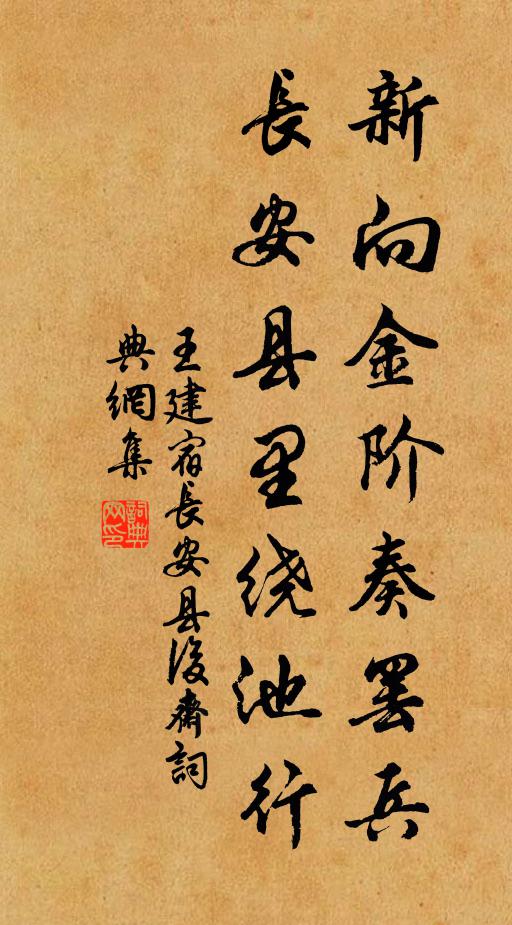 新向金阶奏罢兵
長安县里绕池行
王建宿長安县後齋詞
典網集
詞典
网印